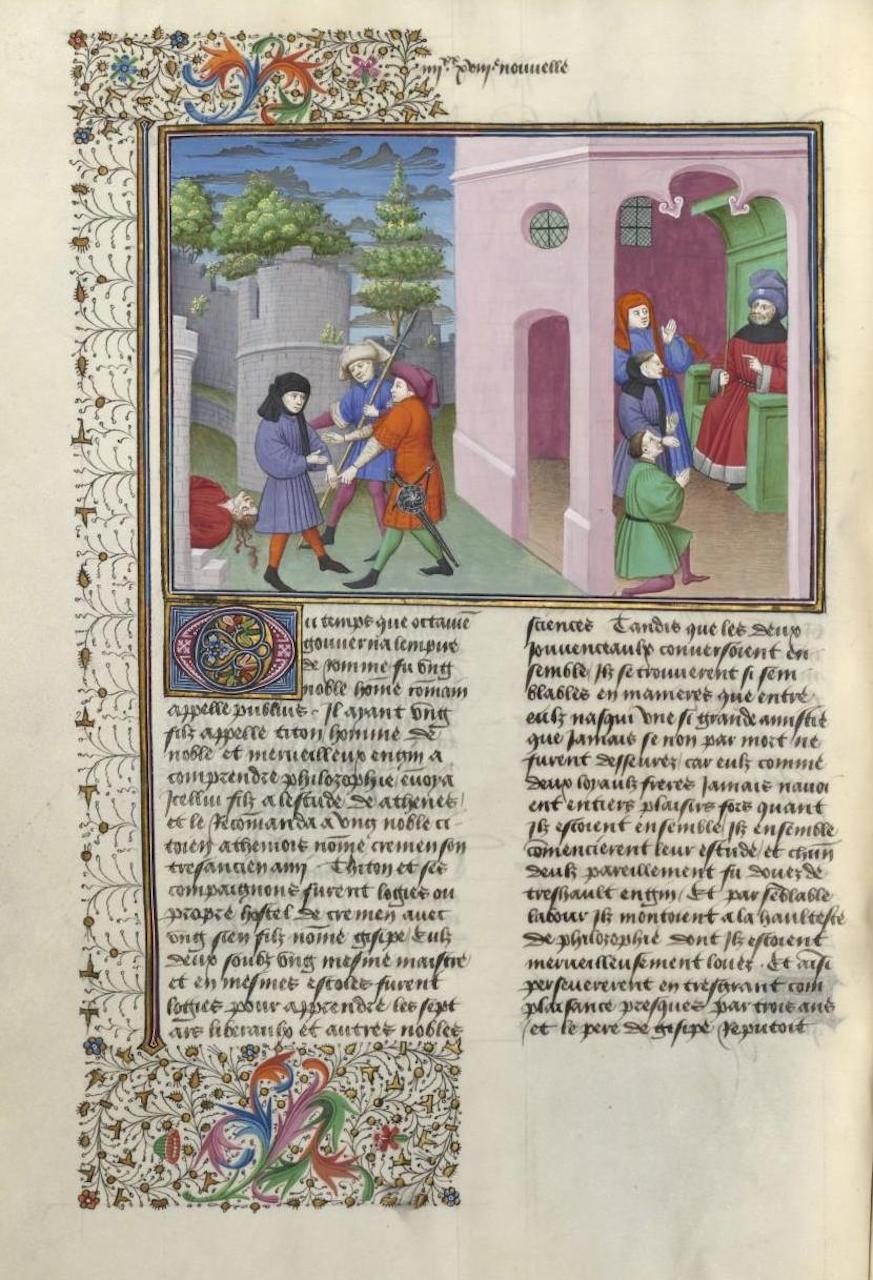 iiij.xx xviij.e nouuelle
Ou temps que octauie
gouuerna lempire
de romme fu vng
noble hom̄e romain
appelle publius. Il ayant vng
filz appelle titon homme de
noble et merueilleux engin a
comprendre philozophie enuoya
Icellui filz a lestude de athenes
et le Recom̄anda a vng noble ci
toien atheniois nom̄e cremen son
tresancien amy. Thiton et ses
compaignons furent logies ou
propre hostel de cremen auec
vng sien filz nom̄e gisipe / Eulx
deux soubz vng mesme maistre
et en mesmes escoles furent
logies pour apprendre les sept
ars liberaulx et autres nobles
sciences Tandis que les deux
Jouuenceaulx conuersoient en
semble / Ilz se trouuerent si sem
blables en manieres que entre
eulx nasqui vne si grande amistie
que Jamais se non par mort ne
furent desseurez car eulx comme
deux loyaulx freres Jamais nauoi
ent entiers plaisirs fors quant
Ilz estoient ensemble / Ilz ensemble
commencierent leur estude / et chūn
deulx pareillement fu douez de
treshault engin / Et par sēblable
labour Ilz montoient a la haultesse
de philozophie dont Ilz estoient
merueilleusement louez. Et aīsi
perseuererent en tresgrant com
plaisance presques par trois ans
et le pere de gisipe Reputoit